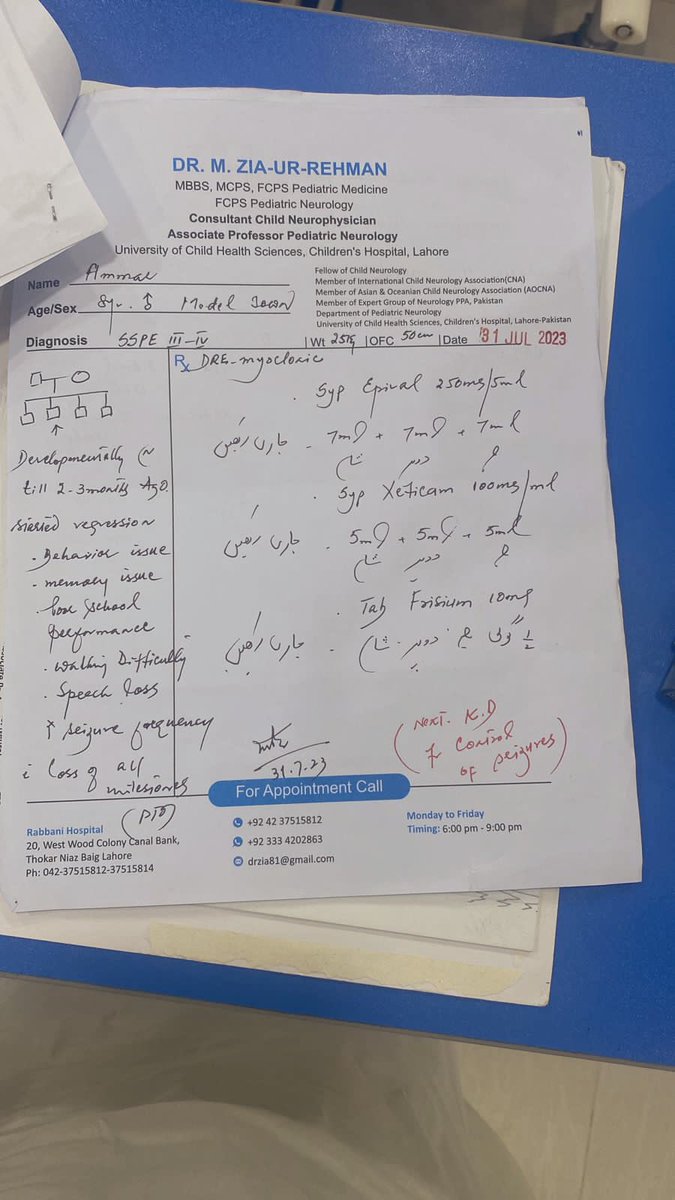 DR. M. ZIA-UR-REHMAN
MBBS, MCPS, FCPS Pediatric Medicine
FCPS Pediatric Neurology
Consultant Child Neurophysician
Associate Professor Pediatric Neurology
University of Child Health Sciences, Children's Hospital, Lahore
Name Ammar
Age/Sex 8yr. Model Town
Fellow of Child Neurology
Member of International Child Neurology Association(CNA)
Member of Asian & Oceanian Child Neurology Association (AOCNA)
Member of Expert Group of Neurology PPA, Pakistan
Department of Pediatric Neurology
University of Child Health Sciences, Children's Hospital, Lahore-Pakistan
Diagnosis SSPE III-IV | Wt 25kg | OFC 50cm | Date 31 JUL 2023
Rx DRE-myoclonic
Developmentally
till 2-3 months Ago.
started regression
. Behavior issue
. memory issue
. Poor school
performance
. Walking Difficulty
. Speech loss
↑ seizure frequency
loss of all
milestones
(PTO)
. Syp Epival 250mg/5ml
جاری رکھیں . 7ml + 7ml + 7ml
شام دوپہر صبح
. Syp Xeticam 100mg/ml
جاری رکھیں . 5ml + 5ml + 5ml
شام دوپہر صبح
. Tab Frisium 10mg
½ گولی صبح دوپہر شام جاری رکھیں
31.7.23
(Next. K.D
control
of seizures)
For Appointment Call
Rabbani Hospital
20, West Wood Colony Canal Bank,
Thokar Niaz Baig Lahore
Ph: 042-37515812-37515814
+92 42 37515812
+92 333 4202863
drzia81@gmail.com
Monday to Friday
Timing: 6:00 pm - 9:00 pm